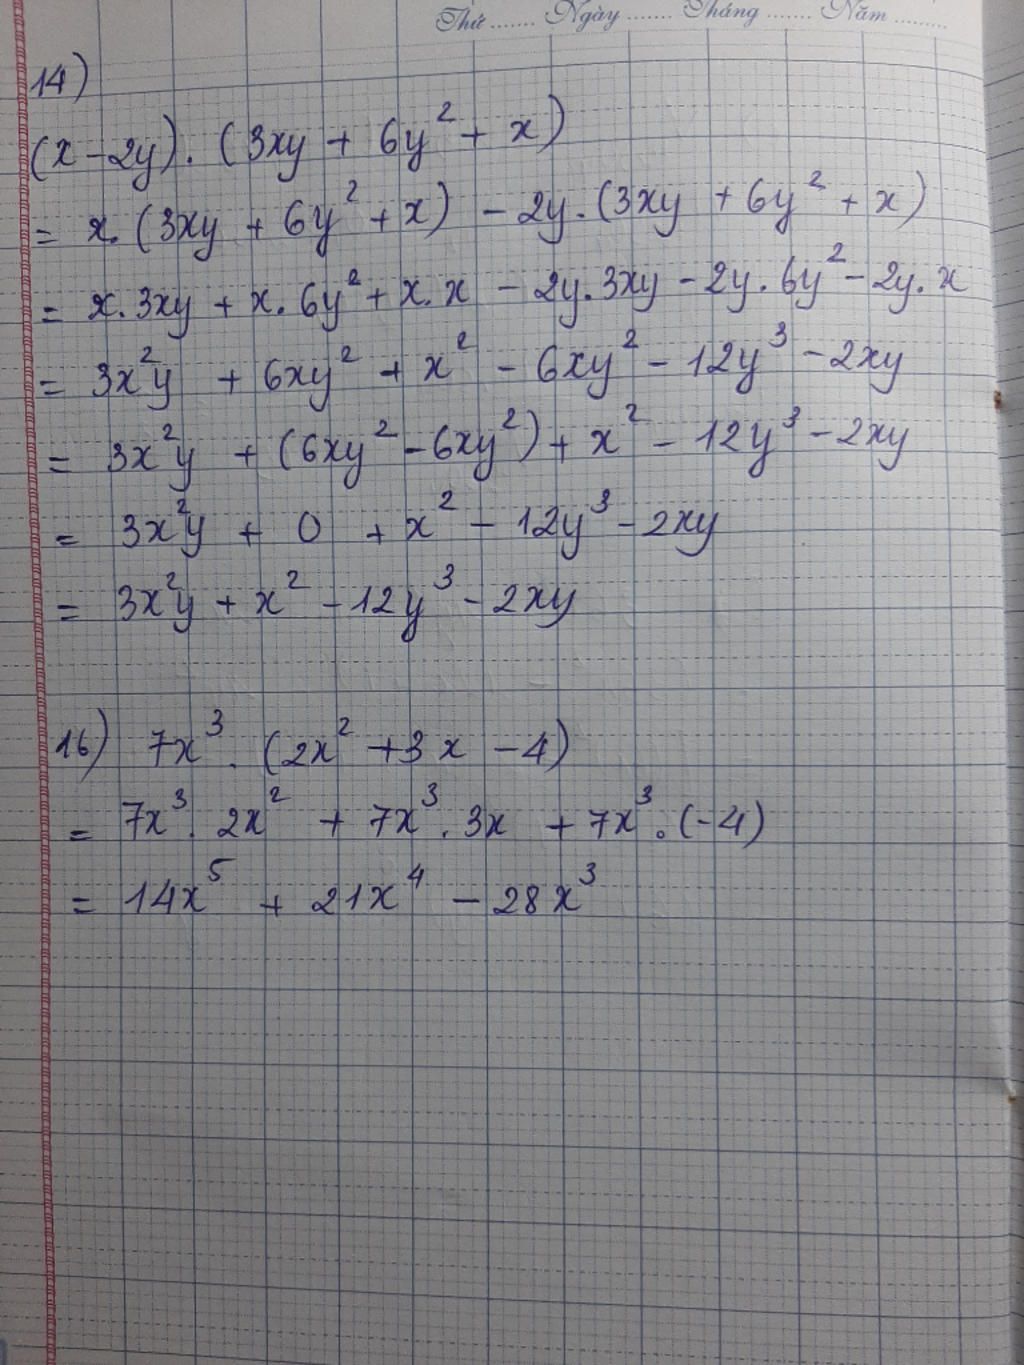 Thứ ....... Ngày ....... Tháng ....... Năm .........
14)
(x - 2y) . (3xy + 6y² + x)
= x. (3xy + 6y² + x) - 2y. (3xy + 6y² + x)
= x. 3xy + x. 6y² + x. x - 2y. 3xy - 2y. 6y² - 2y. x
= 3x²y + 6xy² + x² - 6xy² - 12y³ - 2xy
= 3x²y + (6xy² - 6xy²) + x² - 12y³ - 2xy
= 3x²y + 0 + x² - 12y³ - 2xy
= 3x²y + x² - 12y³ - 2xy
16) 7x³ . (2x² + 3x - 4)
= 7x³. 2x² + 7x³. 3x + 7x³. (-4)
= 14x⁵ + 21x⁴ - 28x³